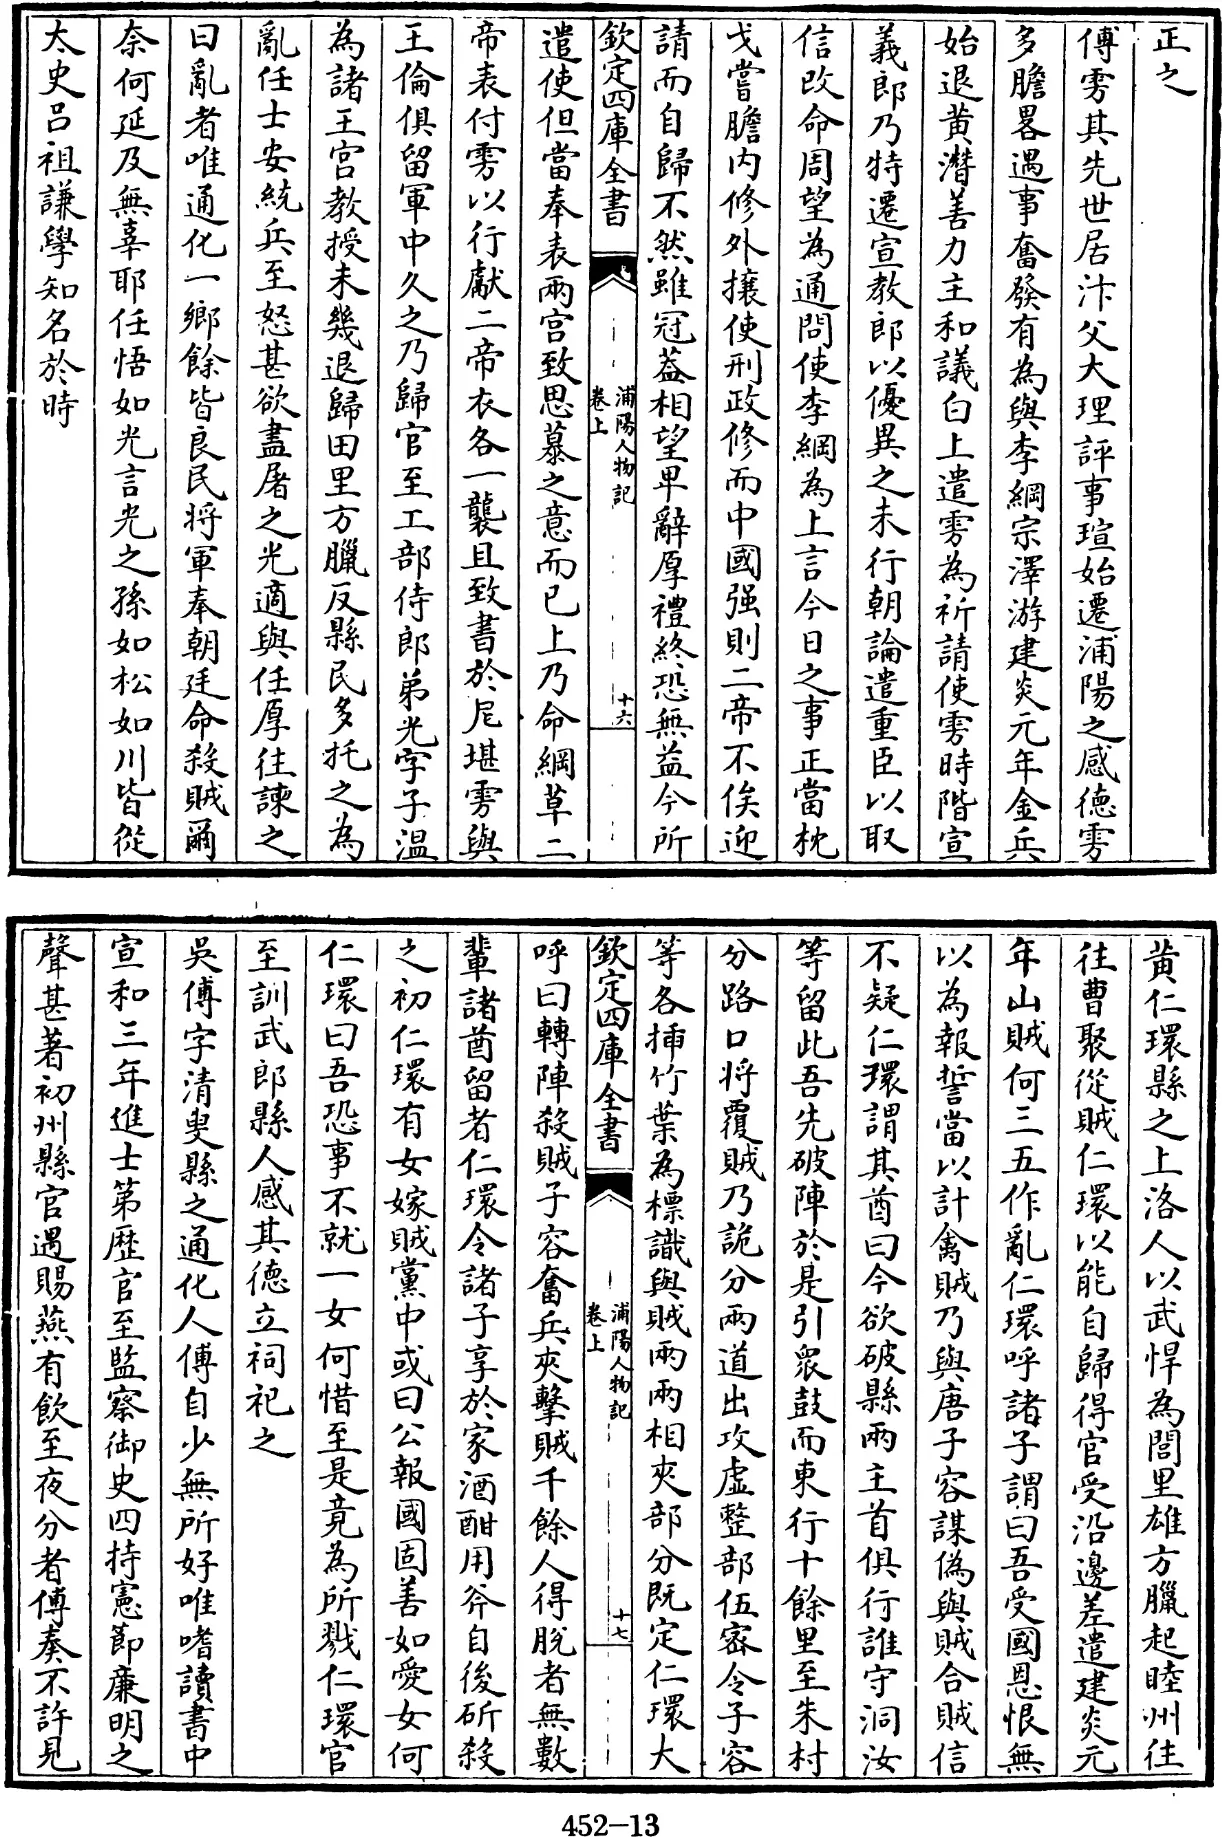 正之
傅雱其先世居汴父大理評事瑄始遷浦陽之感徳雱
多膽畧遇事奮發有為與李綱宗澤游建炎元年金兵
始退黄潜善力主和議白上遣雱為祈請使雱時階宣
義郎乃特遷宣教郎以優異之未行朝論遣重臣以取
信改命周望為通問使李綱為上言今日之事正當枕
戈嘗膽内修外攘使刑政修而中國强則二帝不俟迎
請而自歸不然雖冠葢相望卑辭厚禮終恐無益今所
欽定四庫全書
浦陽人物記
卷上
十六
遣使但當奉表兩宫致思慕之意而已上乃命綱草二
帝表付雱以行獻二帝衣各一襲且致書於尼堪雱與
王倫俱留軍中久之乃歸官至工部侍郎弟光字子温
為諸王宫教授未幾退歸田里方臘反縣民多托之為
亂任士安統兵至怒甚欲盡屠之光適與任厚往諫之
曰亂者唯通化一鄉餘皆良民将軍奉朝廷命殺賊爾
奈何延及無辜耶任悟如光言光之孫如松如川皆從
太史吕祖謙學知名於時
黄仁環縣之上洛人以武悍為閭里雄方臘起睦州往
往曹聚從賊仁環以能自歸得官受沿邊差遣建炎元
年山賊何三五作亂仁環呼諸子謂曰吾受國恩恨無
以為報誓當以計禽賊乃與唐子容謀偽與賊合賊信
不疑仁環謂其酋曰今欲破縣兩主首俱行誰守洞汝
等留此吾先破陣於是引衆鼓而東行十餘里至朱村
分路口将覆賊乃詭分兩道出攻虚整部伍宻令子容
等各揷竹葉為標識與賊兩兩相夾部分既定仁環大
欽定四庫全書
浦陽人物記
卷上
十七
呼曰轉陣殺賊子容奮兵夾擊賊千餘人得脱者無數
輩諸酋留者仁環令諸子享於家酒酣用斧自後斫殺
之初仁環有女嫁賊黨中或曰公報國固善如愛女何
仁環曰吾恐事不就一女何惜至是竟為所戮仁環官
至訓武郎縣人感其徳立祠祀之
吳傅字清叟縣之通化人傅自少無所好唯嗜讀書中
宣和三年進士第歴官至監察御史四持憲節廉明之
聲甚著初州縣官遇賜燕有飲至夜分者傅奏不許見
452-13